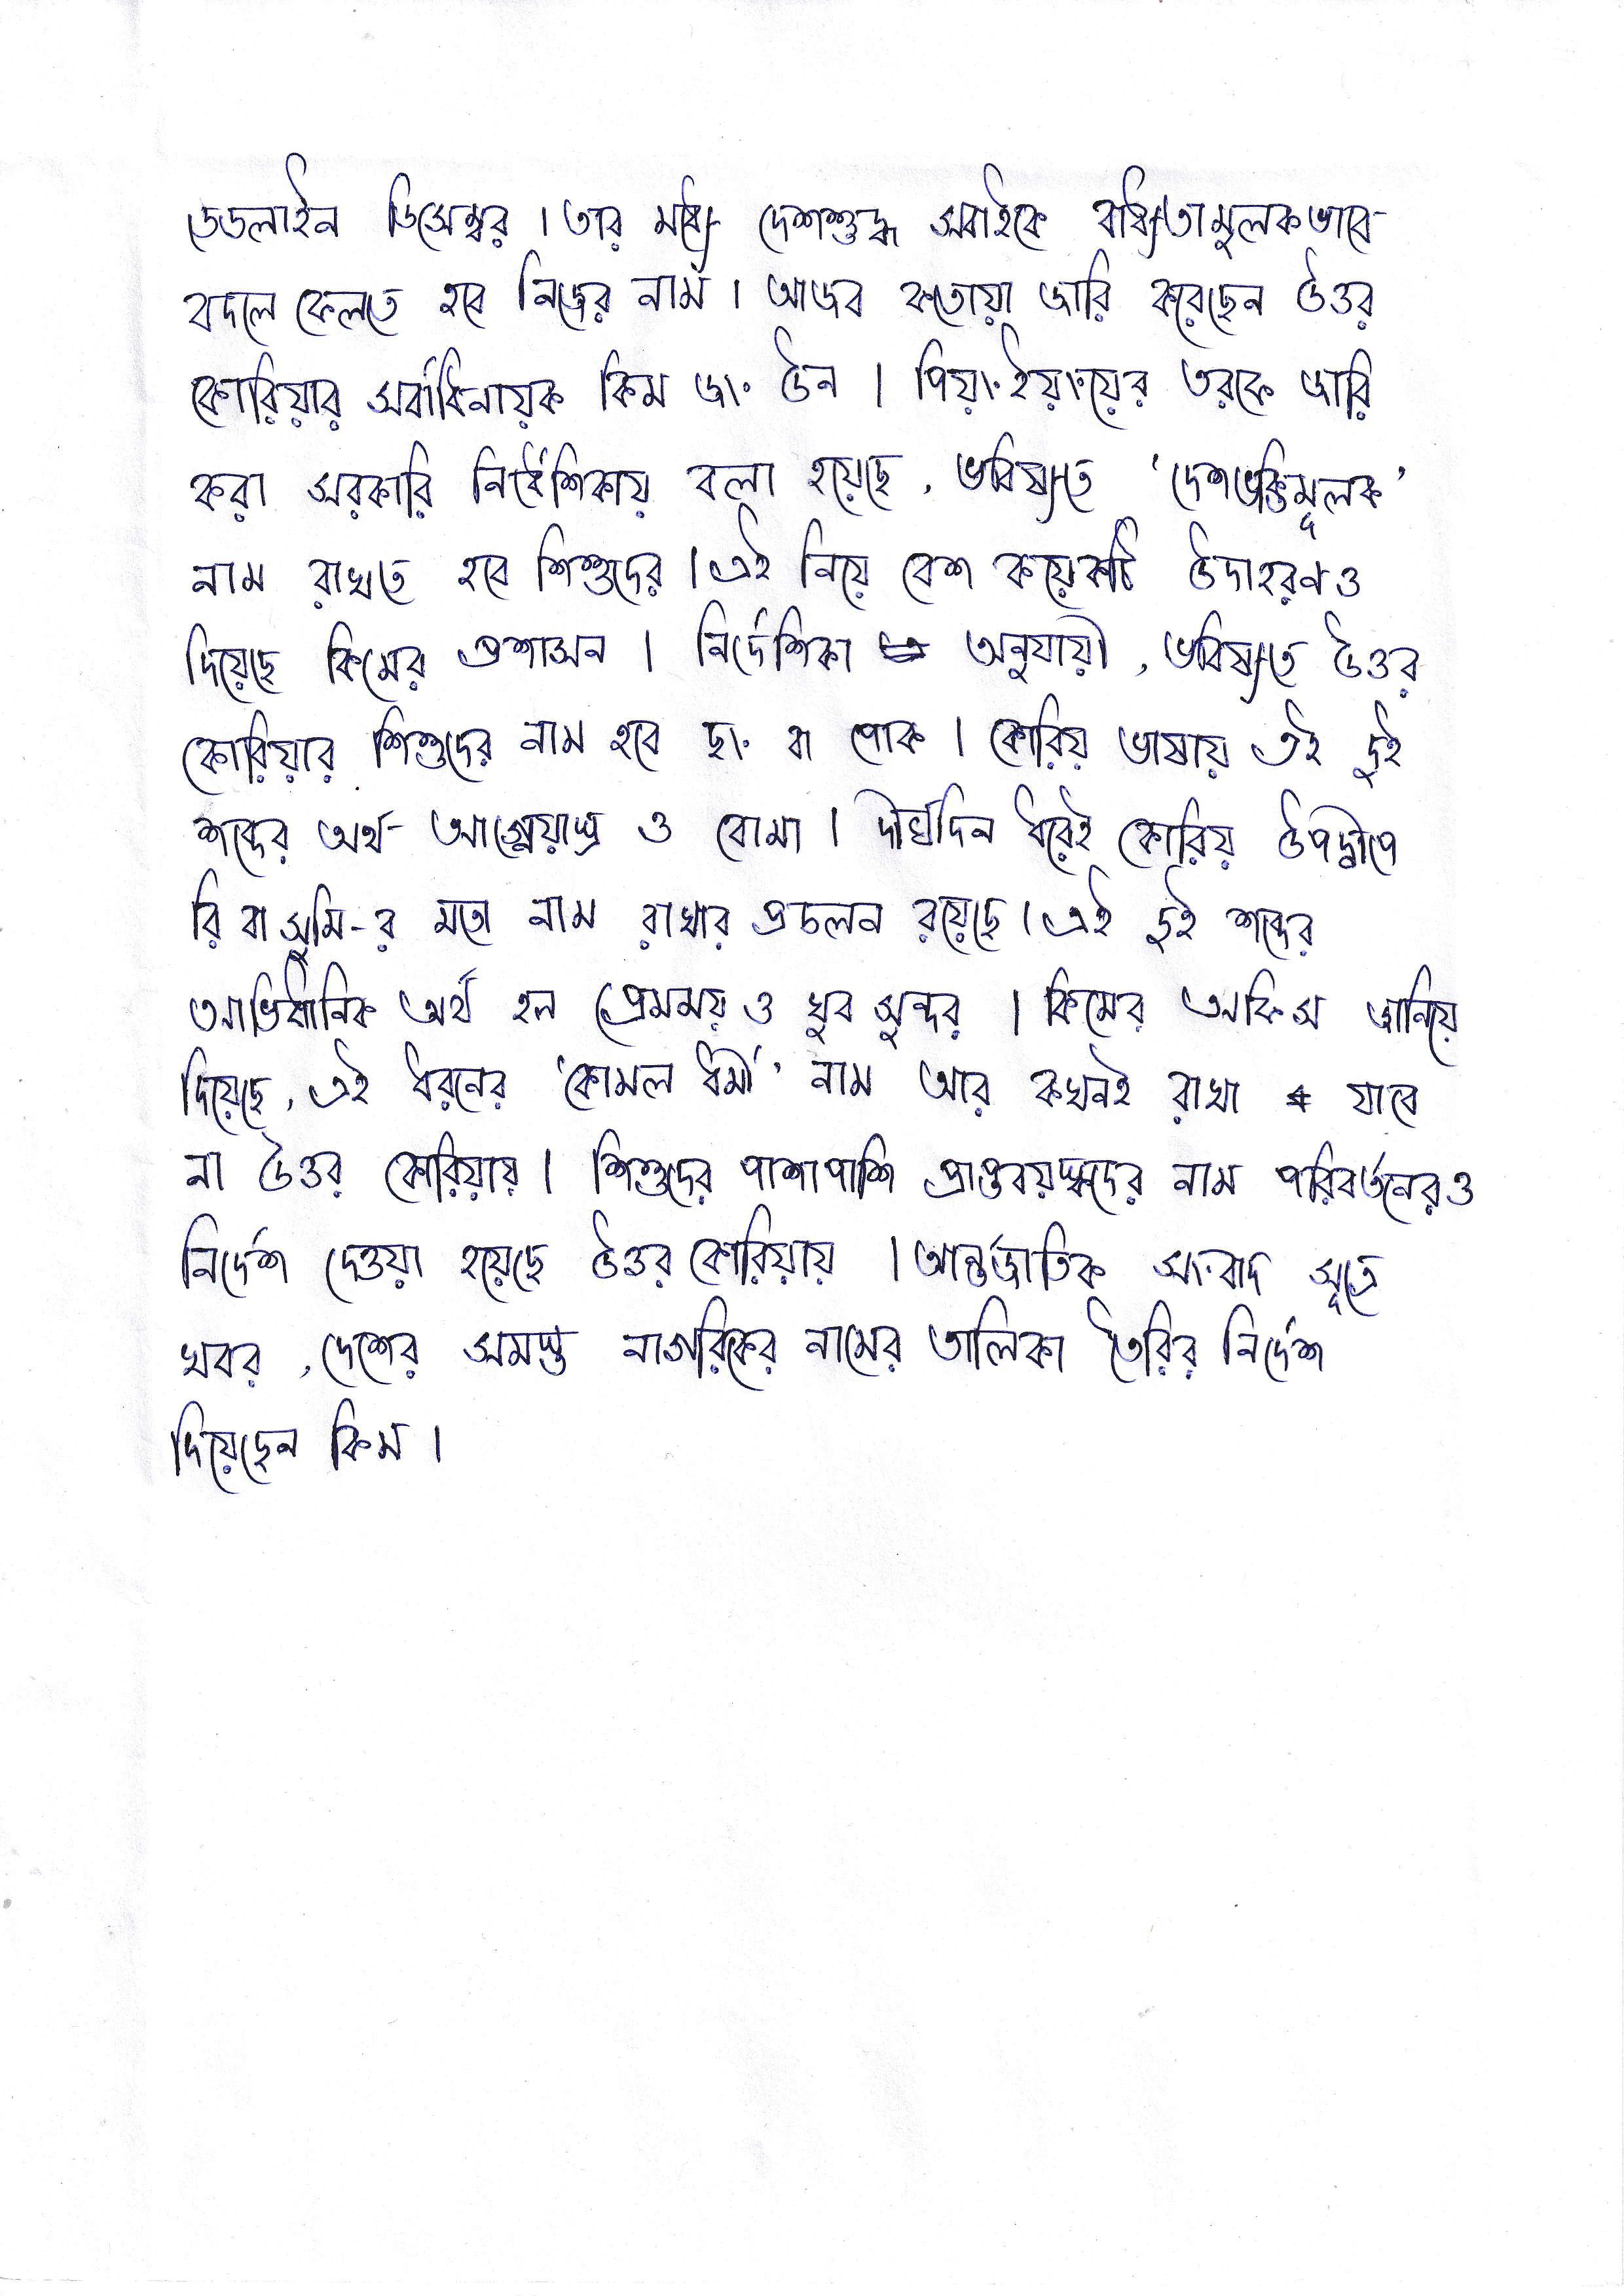 ডেডলাইন ডিসেম্বর । তার মধ্যে দেশশুদ্ধ সবাইকে বাধ্যতামুলকভাবে
বদলে ফেলতে হবে নিজের নাম । আজব ফতোয়া জারি করেছেন উত্তর
কোরিয়ার সর্বাধিনায়ক কিম জং উন । পিয়ংইয়ংয়ের তরফে জারি
করা সরকারি নির্দেশিকায় বলা হয়েছে, ভবিষ্যতে 'দেশভক্তিমূলক'
নাম রাখতে হবে শিশুদের । এই নিয়ে বেশ কয়েকটি উদাহরনও
দিয়েছে কিমের প্রশাসন । নির্দেশিকা অনুযায়ী, ভবিষ্যতে উত্তর
কোরিয়ার শিশুদের নাম হবে ছং বা পোক । কোরিয় ভাষায় এই দুই
শব্দের অর্থ- আগ্নেয়াস্ত্র ও বোমা । দীর্ঘদিন ধরেই কোরিয় উপদ্বীপে
রি বা সুমি-র মতো নাম রাখার প্রচলন রয়েছে । এই দুই শব্দের
আভিধানিক অর্থ হল প্রেমময় ও খুব সুন্দর । কিমের অফিস জানিয়ে
দিয়েছে, এই ধরনের 'কোমল ধর্মী' নাম আর কখনই রাখা যাবে
না উত্তর কোরিয়ায় । শিশুদের পাশাপাশি প্রাপ্তবয়স্কদের নাম পরিবর্তনেরও
নির্দেশ দেওয়া হয়েছে উত্তর কোরিয়ায় । আন্তর্জাতিক সংবাদ সূত্রে
খবর, দেশের সমস্ত নাগরিকের নামের তালিকা তৈরির নির্দেশ
দিয়েছেন কিম ।